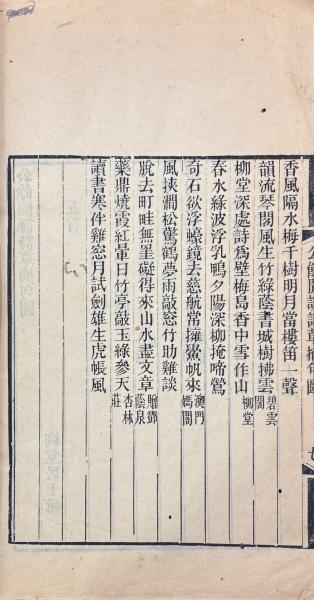 香風隔水梅千樹明月當樓笛一聲
韻流琴閣風生竹綠蔭書城樹拂雲碧雲閣
柳堂深處詩爲壁梅島香中雪作山柳堂
春水綠波浮乳鴨夕陽深柳掩啼鶯
奇石欲浮蠔鏡去慈航常擁鱟帆來澳門媽閣
風狹澗松驚鶴夢雨敲窓竹助雞談
脫去町畦無罣礙得來山水盡文章贈鄧蔭泉
藥鼎燒霞紅暈日竹亭敲玉綠參天杏林莊
讀書寒伴雞窓月試劍雄生虎帳風